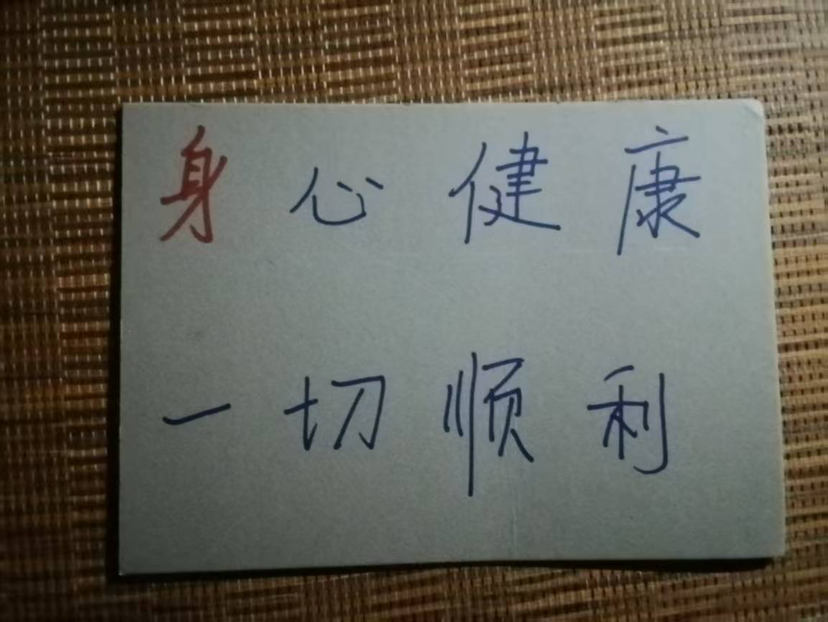 身心健康
一切顺利